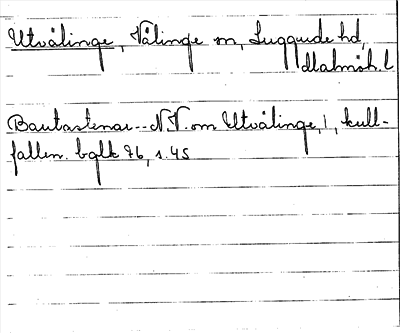 Utvälinge, Välinge sn, Luggude hd,
Malmöh. l
Bautastenar -- N.V. om Utvälinge, 1, kull-
fallen. bglk 76, s. 45